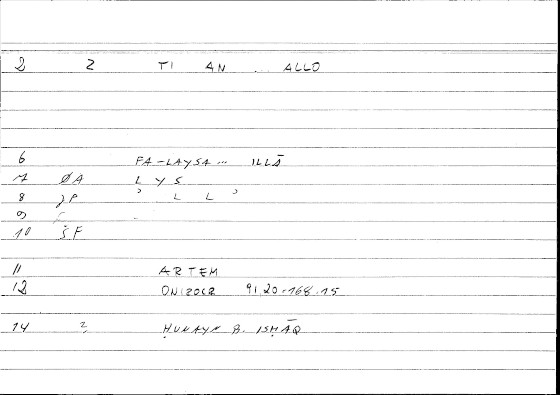 2 2 TI AN ... ALLO
6 FA-LAYSA... ILLĀ
7 ØA L Y S
8 JP ʾ L L ʾ
9
10 ŠF
11 ARTEM
12 ONIROCR 91.20-168.15
14 2 ḤUNAYN B. ISḤĀQ